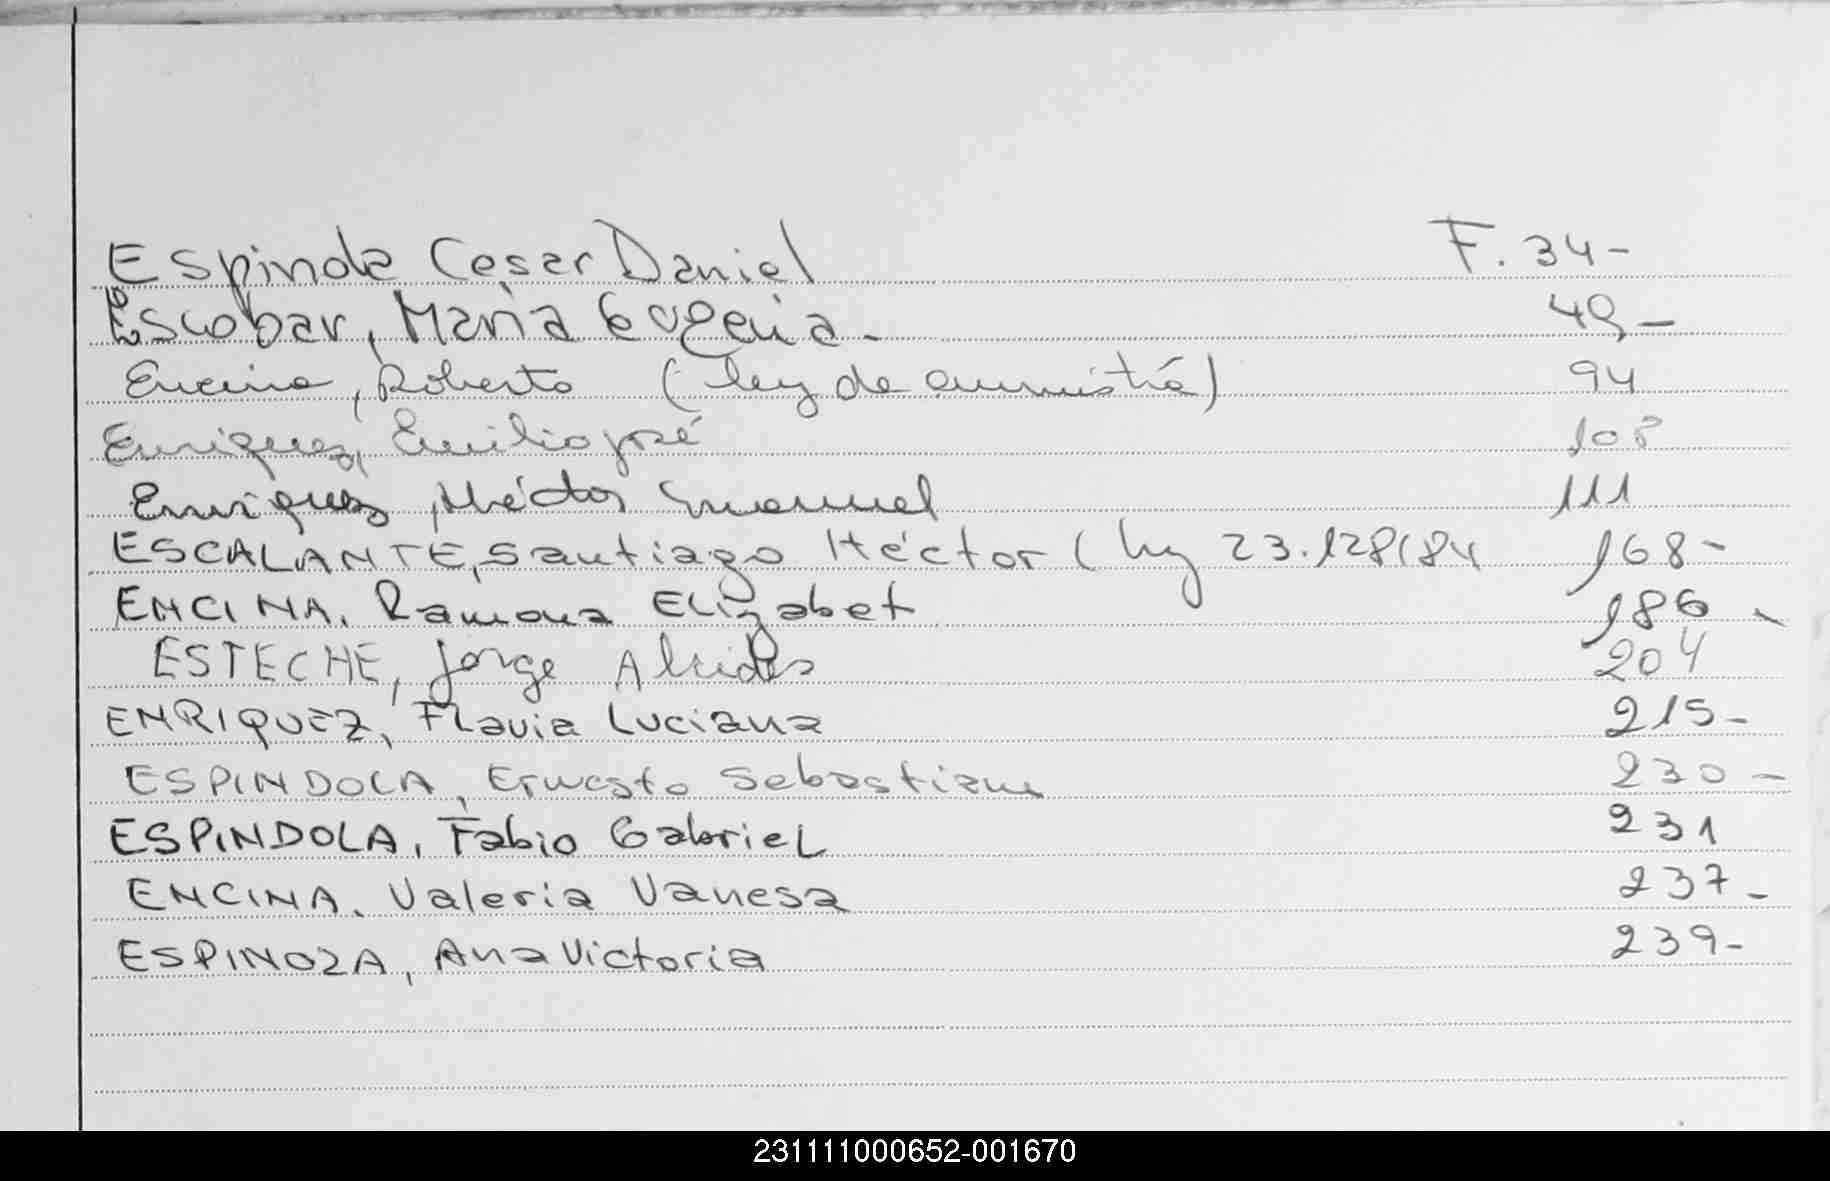 Espinola Cesar Daniel F. 34-
Escobar, Maria Eugenia - 49-
Encina, Roberto (ley de amnistía) 94
Enriquez, Emilio José 108
Enriquez, Héctor Manuel 111
ESCALANTE, Santiago Héctor (ley 23.128/84 168-
ENCINA. Ramona Elizabet 186-
ESTECHE, Jorge Alcides 204
ENRIQUEZ, Flavia Luciana 215-
ESPINDOLA, Ernesto Sebastian 230-
ESPINDOLA, Fabio Gabriel 231
ENCINA. Valeria Vanesa 237-
ESPINOZA, Ana Victoria 239-
231111000652-001670